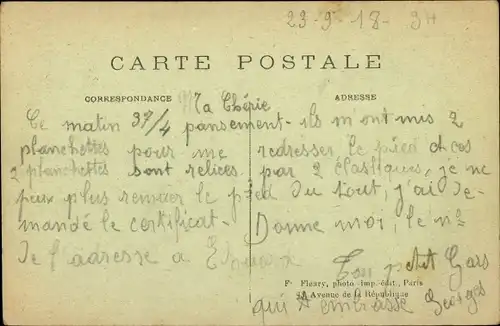 23-9-18-9H
CARTE POSTALE
CORRESPONDANCE Ma Chérie ADRESSE
Ce matin 37/4 pansement - ils m ont mis 2
planchettes pour me redresser le pied et ces
2 planchettes sont reliées par 2 élastiques, je ne
peux plus remuer le pied du tout, j'ai de-
mandé le certificat - Donne moi, le n°
de l'adresse a
Ton petit Gars
qui t'embrasse Georges
F. Fleury, photo-imp.-édit., Paris
Avenue de la République